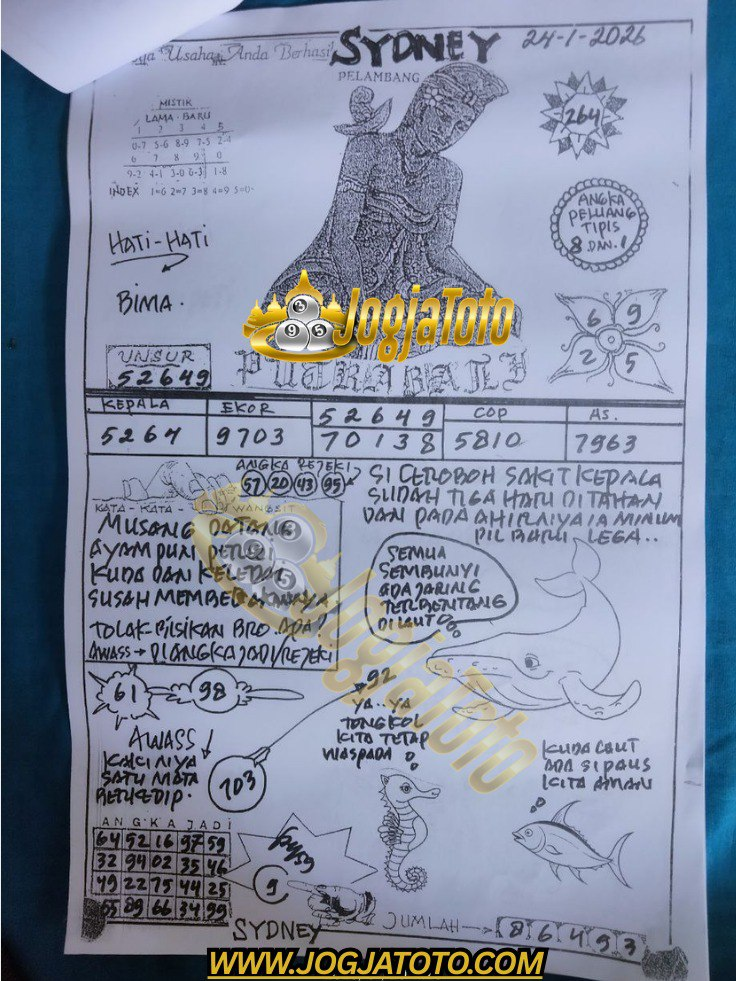 Usaha Anda Berhasil
SYDNEY
24-1-2026
PELAMBANG
MISTIK
LAMA - BARU
1 2 3 4 5
0-7 5-6 8-9 7-5 2-4
6 7 8 9 0
9-2 4-1 3-0 6-3 1-8
INDEX 1=6 2=7 3=8 4=9 5=0
264
ANGKA
PELUANG
TIPIS
8 DAN 1
HATI-HATI
BIMA.
6 9
2 5
JogjaToto
UNSUR
52649
PUTRA BALI
KEPALA
EKOR
52649
COP
AS.
5267
9703
70138
5810
7963
ANGKA REJEKI
57 20 43 95
SI CEROBOH SAKIT KEPALA
SUDAH TIGA HARI DITAHAN
DAN PADA AHIRNIYA IA MINUM
PIL BARU.. LEGA..
KATA - KATA - WANGSIT
MUSANG DATANG
AYAM PUN
KUDA DAN KELEDAI
SUSAH
TOLAK-BISIKAN BRO.ADA?
AWASS → DIANGKA JADI/REJEKI
SEMUA
SEMBUNYI
ADA JARING
TERBENTANG
DI LAUT
61
98
92
YA..YA
TONGKOL
KITA TETAP
WASPADA
AWASS
KAKINIYA
SATU MATA
BERKEDIP.
703
KUDA LAUT
ADA SI PAUS
KITA AMAN
ANGKA JADI
64 52 16 97 59
32 94 02 35 46
49 22 75 44 25
55 89 66 34 99
9
SYDNEY
JUMLAH → 8 6 4 9 3
JogjaToto
WWW.JOGJATOTO.COM